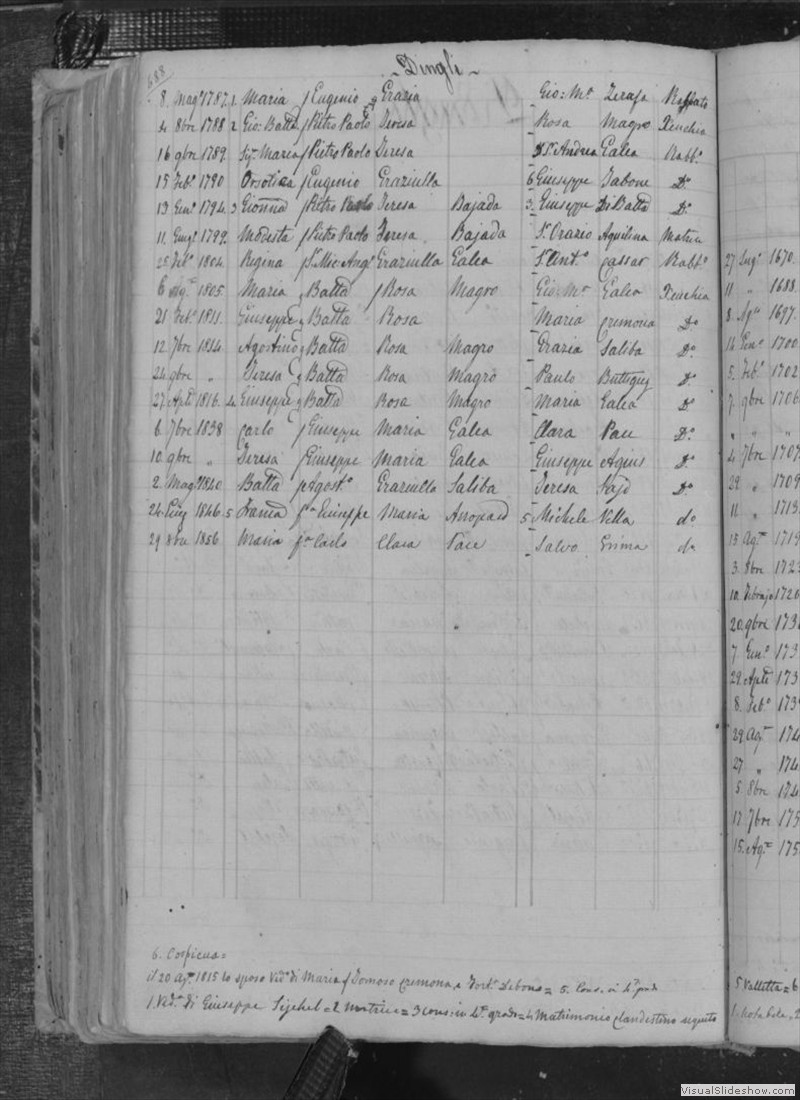 688
Dingli
8. Mag° 1787. 1. Maria f Eugenio e Grazia Gio: M.ª Zerafa Rabbato
4 8bre 1788 2 Gio: Batta f Pietro Paolo Teresa Rosa Magro Xeuchia
16 9bre 1789. Maria f Pietro Paolo Teresa Andrea Galea Rabb.°
15 Feb.° 1790 Orsolica f Eugenio Graziulla 6 Giuseppe Zabone D.°
13 Gen.° 1794. 3 Gionna f Pietro Paolo Teresa Bajada 3. Giuseppe Di Batta D.°
11. 1799. Modesta f Pietro Paolo Teresa Bajada Orazio Aquilina Matrice
25 Feb.° 1804. Regina f Mic: Ang.° Graziulla Galea Cassar Rabb.°
6 1805. Maria Batta f Rosa Magro Gio: M.ª Galea Xeuchia
21 Feb.° 1811. Giuseppe Batta Rosa Maria Cremona D.°
12. 7bre 1814. Agostino Batta Rosa Magro Grazia Saliba D.°
24 9bre „ Teresa Batta Rosa Magro Paulo Buttigieg D.°
27 Aple 1816. 4. Giuseppe Batta Rosa Magro Maria Galea D.°
6 7bre 1838 Carlo f Giuseppe Maria Galea Clara Pace D.°
10. 9bre „ Teresa f Giuseppe Maria Galea Giuseppe Agius D.°
2. Mag° 1840 Batta f Agost.° Graziulla Saliba Teresa D.°
24. 1846. 5 f Giuseppe Maria 5 Michele Vella d.°
29 1856. Maria f Carlo Clara Pace Salvo Grima d.°
27 Lug.° 1670.
11 „ 1688.
8 Ag.° 1697.
14 Gen.° 1700.
5. Feb.° 1702
7. 9bre 1706
„ „ „
4 7bre 1707
29 „ 1709
11 „ 1713.
13 Ag.° 1719
3. 8bre 1723
20. 9bre 173
7. Gen.° 173
29. Aple 173
8. Feb.° 173
29 Ag.° 174
27 „ 174
5. 8bre 174
17 7bre 175
15. Ag.° 175
6. Cospicua =
il 20 Ag.° 1815 lo sposo Vid.° di Maria f Tomaso Cremona, e = 5. Cons. in 4.° grado
1. Vid.ª di Giuseppe = 2 Matrice = 3 cons: in 4.° grado = 4 Matrimonio clandestino seguito
5 Valletta = 6